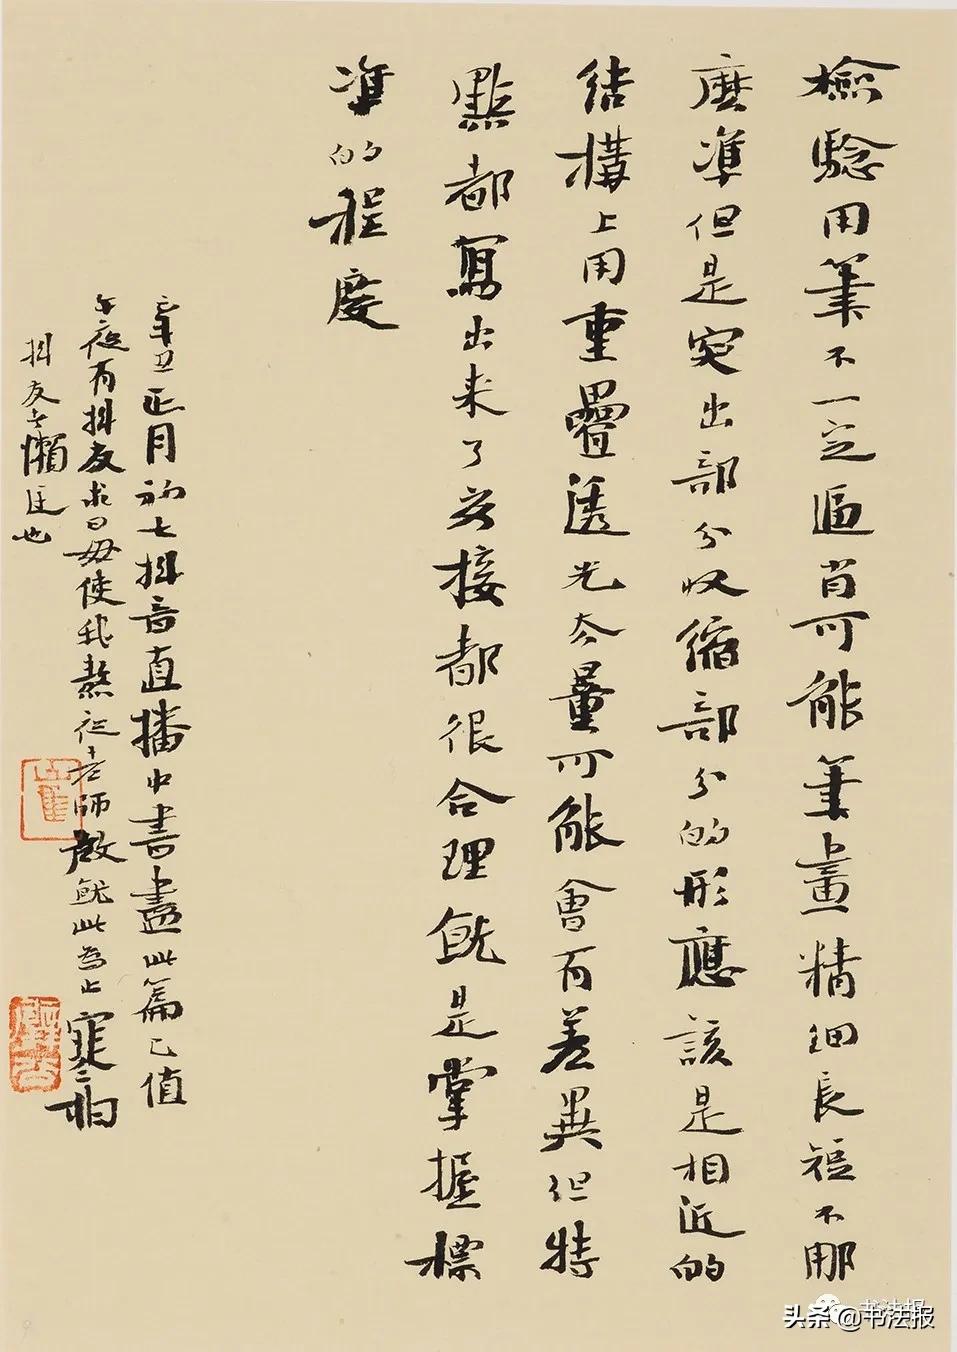 檢驗用筆不一定逼肖可能筆畫精細長短不那
麽準但是突出部分收縮部分的形應該是相近的
結構上用重疊透光大量可能會有差異但特
點都寫出來了安接都很合理就是掌握標
準的程度
辛丑正月初七抖音直播中書盡此篇已值
午夜有抖友求曰毋使我熬夜老師啟就此為止
抖友士懶廷也
头条@书法报
书法报